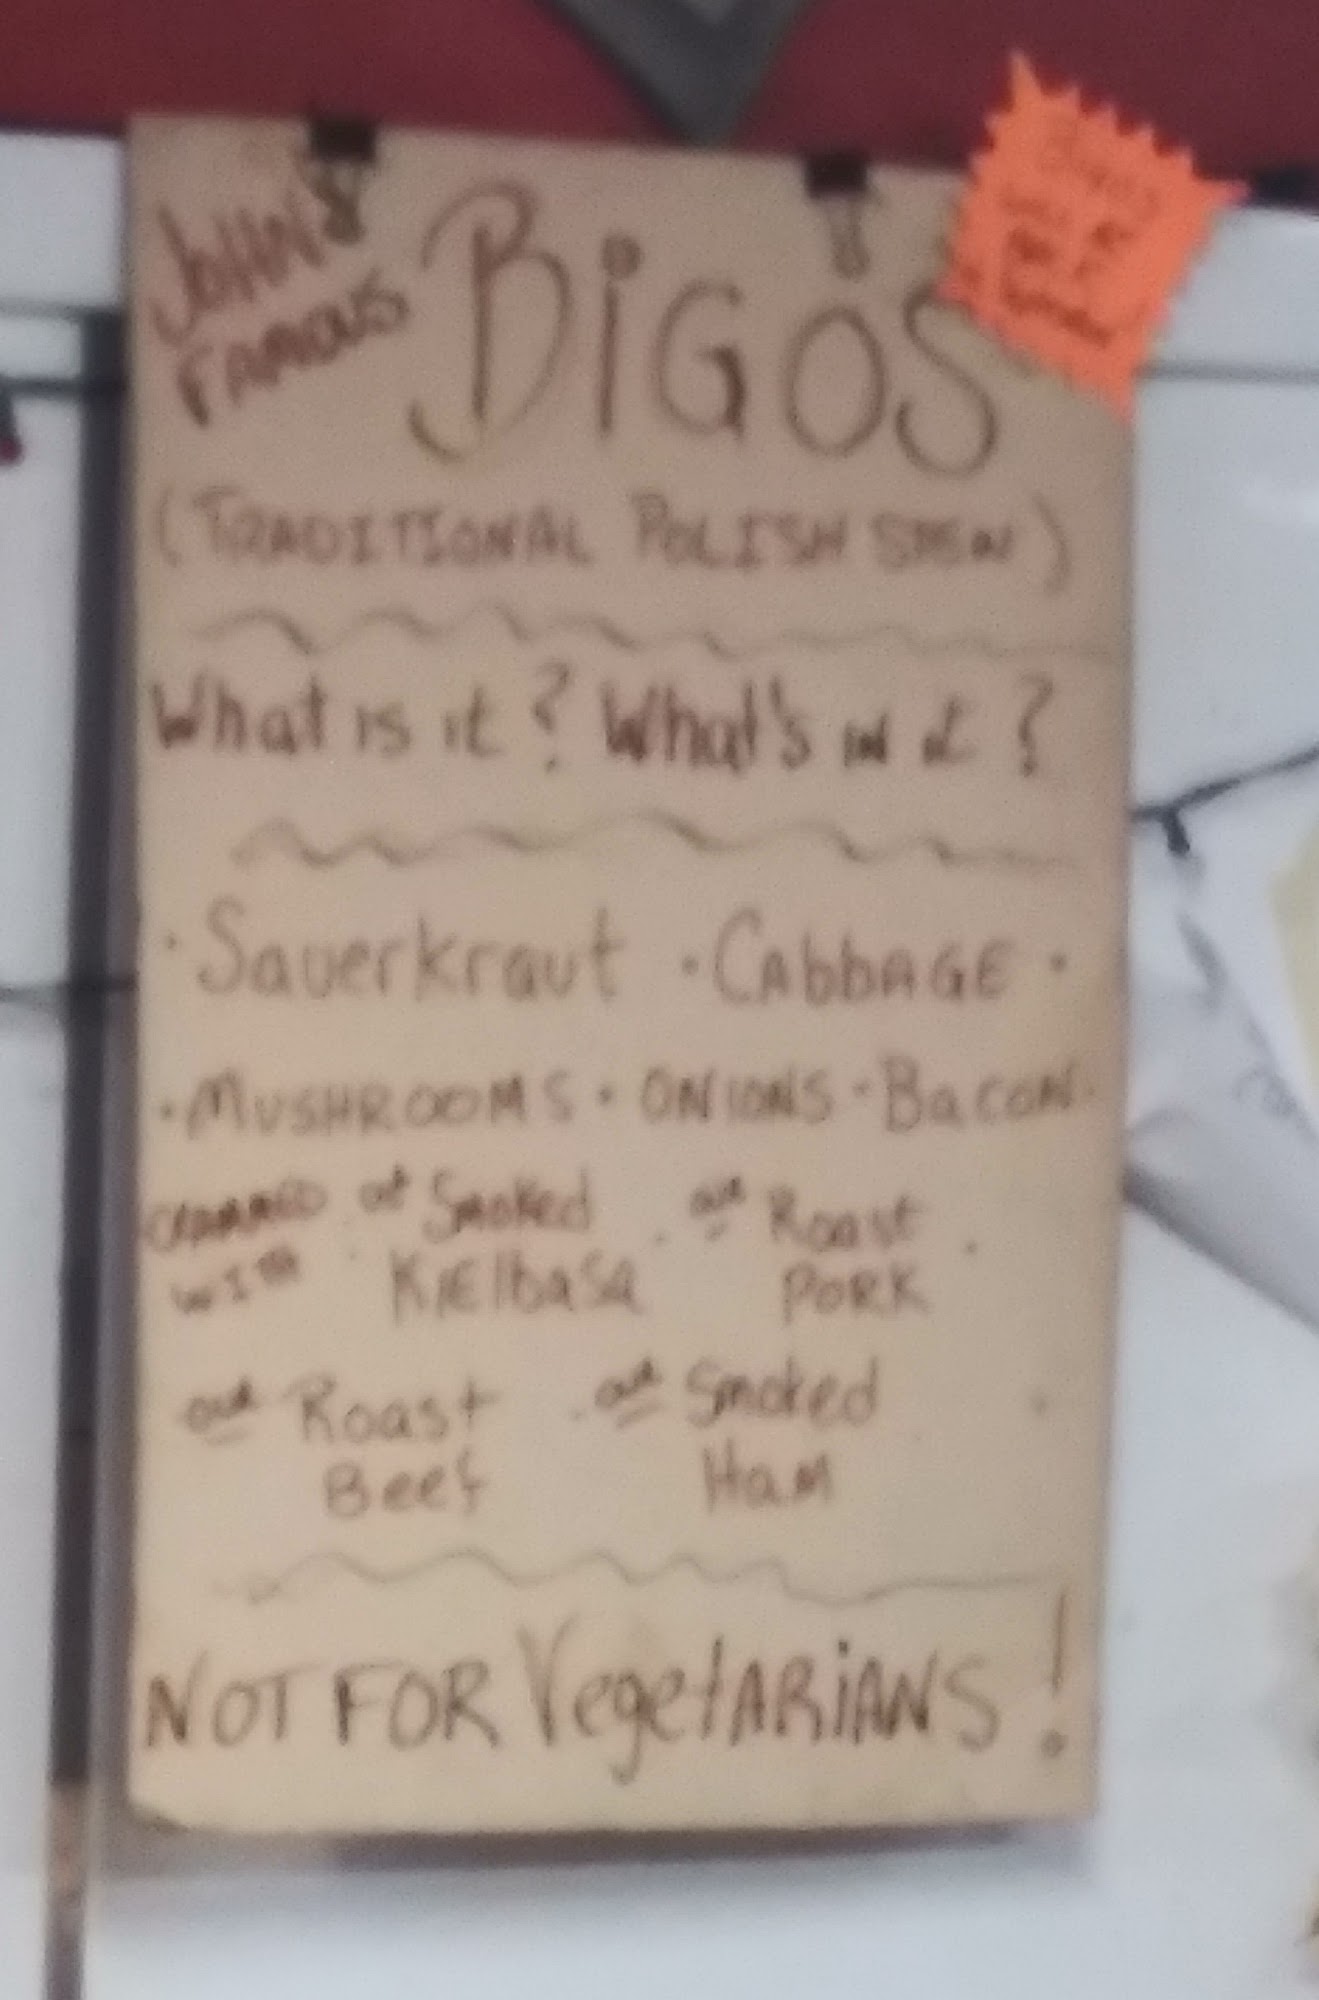 JOHN'S
FAMOUS
BiGOS
(TRADITIONAL POLISH STEW)
What is it? What's in it?
· Sauerkraut · CAbbAGE ·
· MUSHROOMS · ONIONS · BaCON ·
CRAMMED
WITH
Smoked
KIElbaSa
our Roast
PORK
our Roast
Beef
our Smoked
Ham
NOT FOR VegetARiANS!